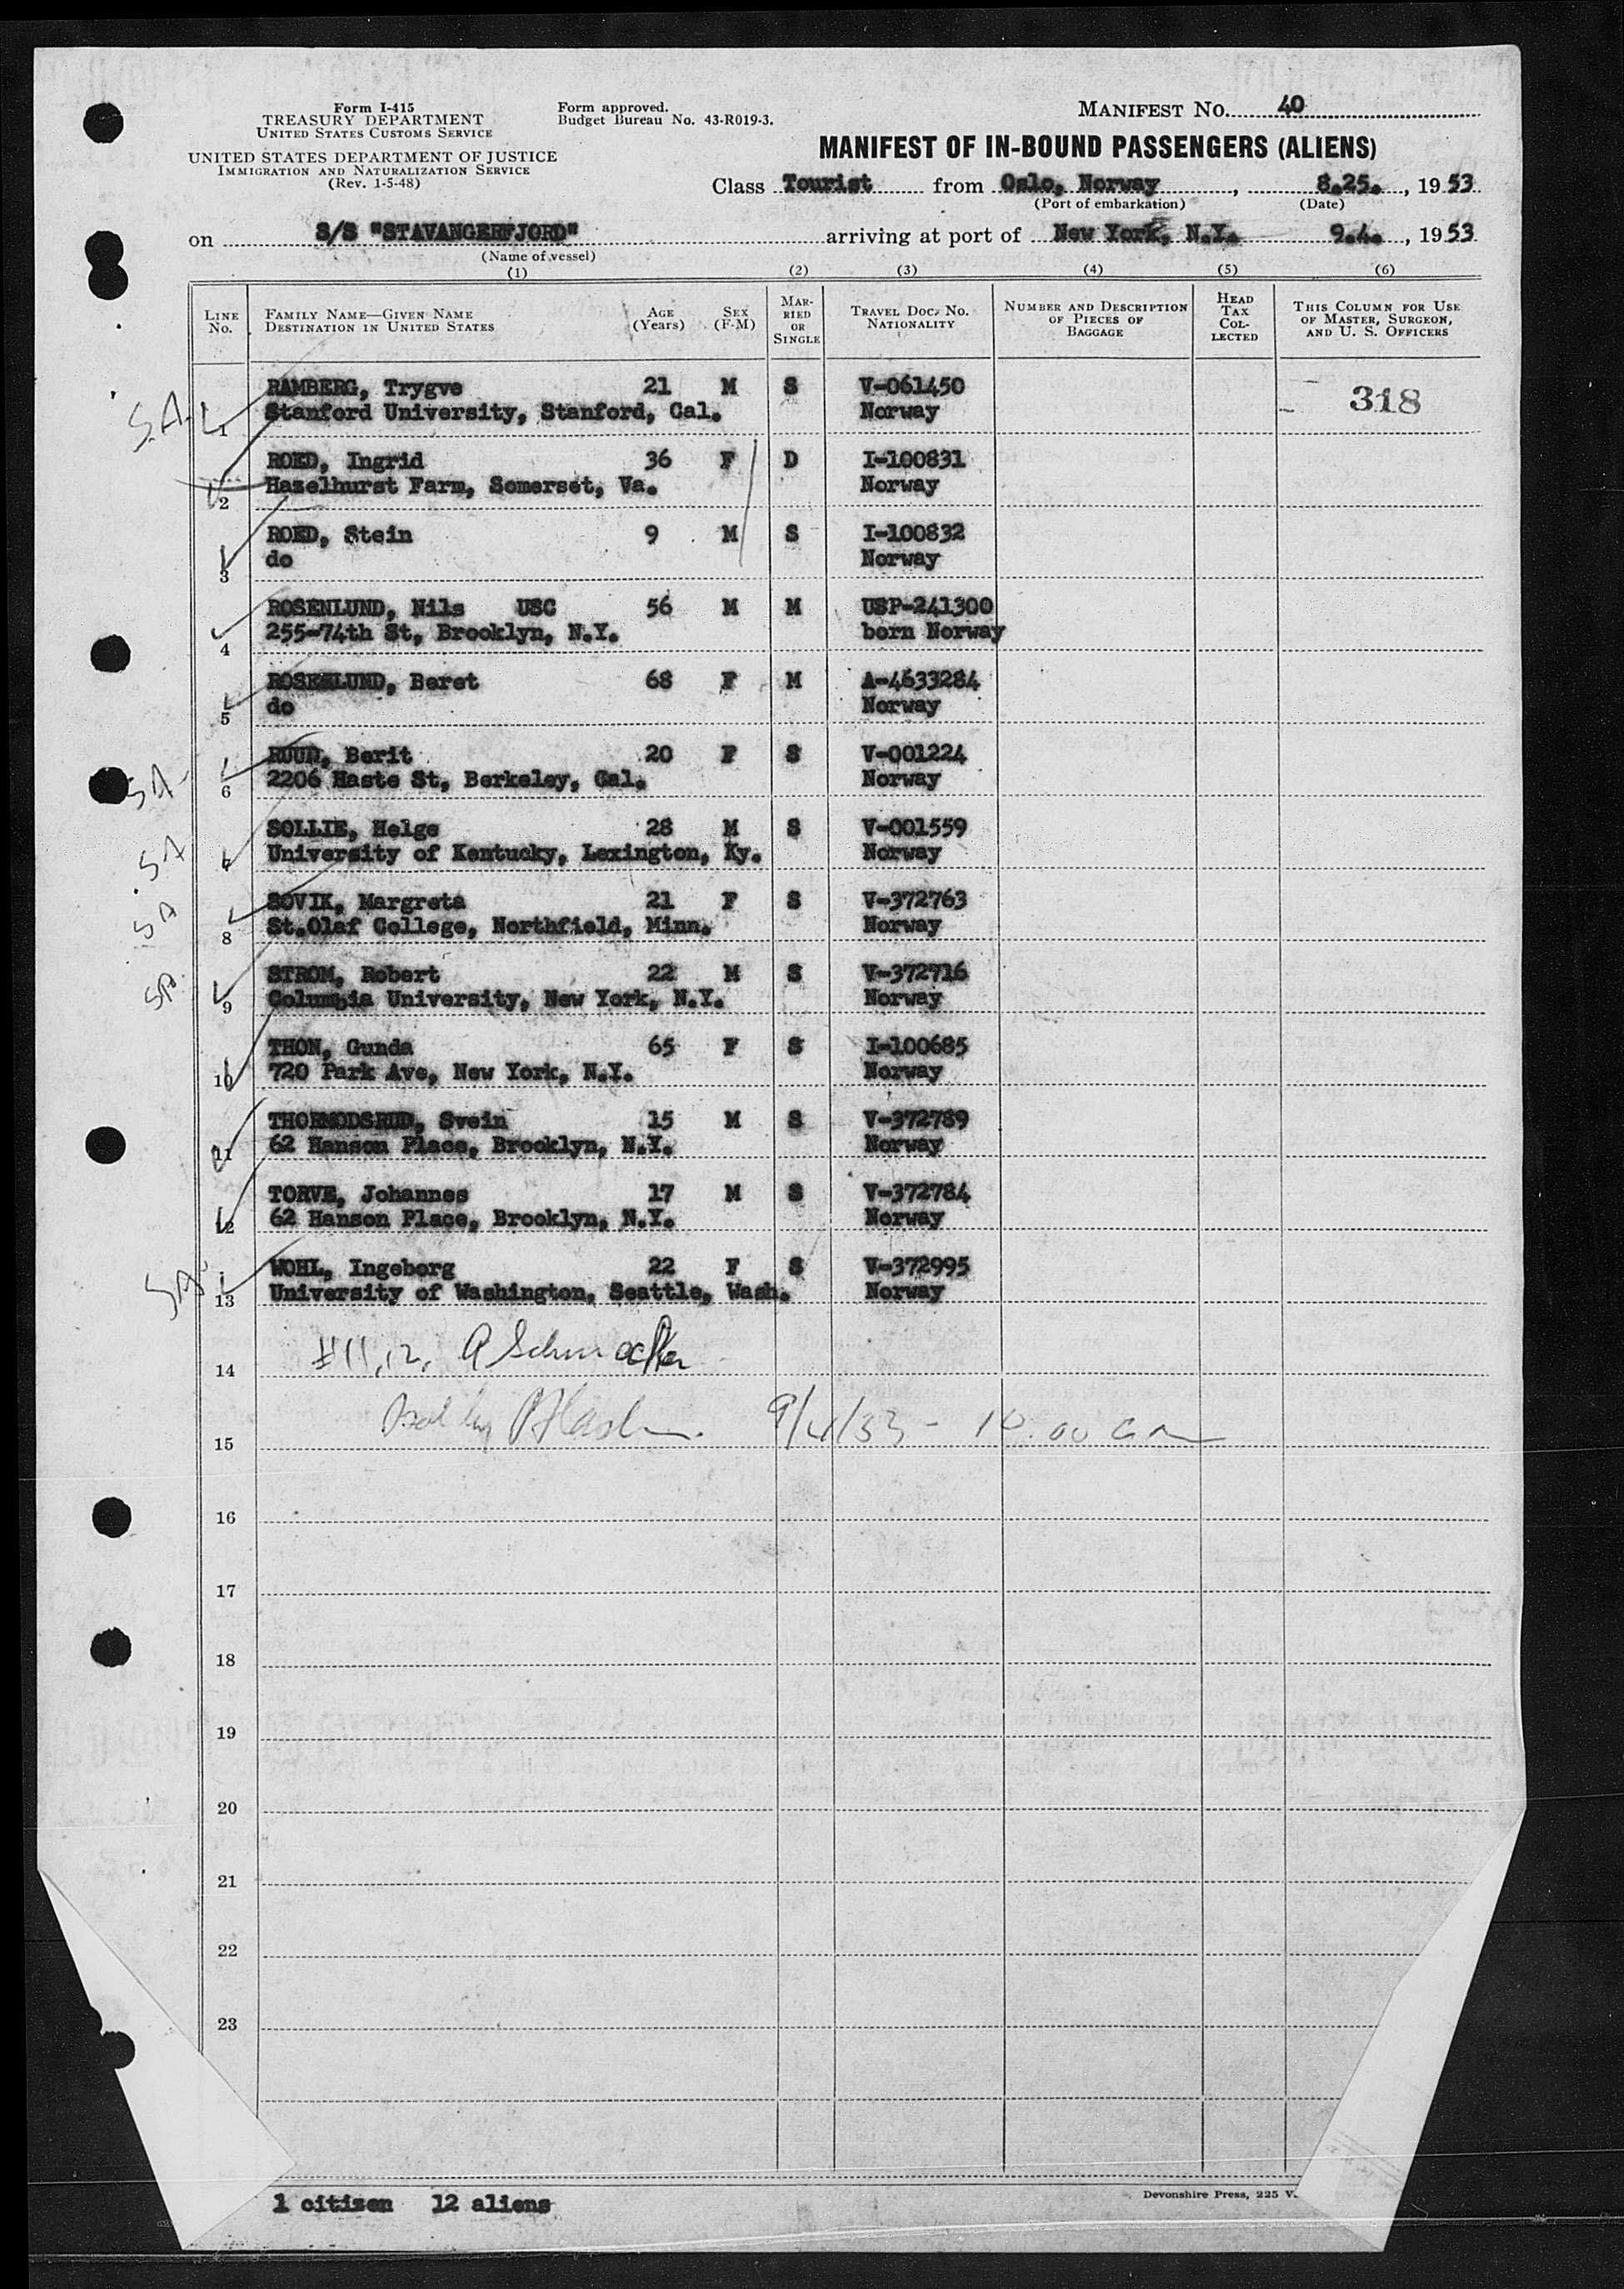 Form I-415
TREASURY DEPARTMENT
UNITED STATES CUSTOMS SERVICE
UNITED STATES DEPARTMENT OF JUSTICE
IMMIGRATION AND NATURALIZATION SERVICE
(Rev. 1-5-48)
Form approved.
Budget Bureau No. 43-R019-3.
MANIFEST NO. 40
MANIFEST OF IN-BOUND PASSENGERS (ALIENS)
Class Tourist from Oslo, Norway, 8.25., 1953
(Port of embarkation) (Date)
on S/S "STAVANGERFJORD" arriving at port of New York, N.Y. 9.4., 1953
(Name of vessel)
(1) (2) (3) (4) (5) (6)
LINE No. FAMILY NAME—GIVEN NAME DESTINATION IN UNITED STATES AGE (Years) SEX (F-M) MARRIED OR SINGLE TRAVEL DOC. NO. NATIONALITY NUMBER AND DESCRIPTION OF PIECES OF BAGGAGE HEAD TAX COLLECTED THIS COLUMN FOR USE OF MASTER, SURGEON, AND U. S. OFFICERS
S.A. RAMBERG, Trygve 21 M S V-061450 318
1 Stanford University, Stanford, Cal. Norway
ROED, Ingrid 36 F D I-100831
2 Hazelhurst Farm, Somerset, Va. Norway
ROED, Stein 9 M S I-100832
3 do Norway
ROSENLUND, Nils USC 56 M M USP-241300
4 255-74th St, Brooklyn, N.Y. born Norway
ROSENLUND, Beret 68 F M A-4633284
5 do Norway
RUUD, Berit 20 F S V-001224
SA- 6 2206 Haste St, Berkeley, Cal. Norway
SOLLIE, Helge 28 M S V-001559
SA 7 University of Kentucky, Lexington, Ky. Norway
SOVIK, Margreta 21 F S V-372763
SA 8 St.Olaf College, Northfield, Minn. Norway
STROM, Robert 22 M S V-372716
SA. 9 Columbia University, New York, N.Y. Norway
THON, Gunda 65 F S I-100685
10 720 Park Ave, New York, N.Y. Norway
THORMODSRUD, Svein 15 M S V-372789
11 62 Hanson Place, Brooklyn, N.Y. Norway
TORVE, Johannes 17 M S V-372784
12 62 Hanson Place, Brooklyn, N.Y. Norway
WOHL, Ingeborg 22 F S V-372995
SA. 13 University of Washington, Seattle, Wash. Norway
14 #11,12,
15 by 9/4/53 - 10.00 am
16
17
18
19
20
21
22
23
1 citizen 12 aliens
Devonshire Press, 225 V.